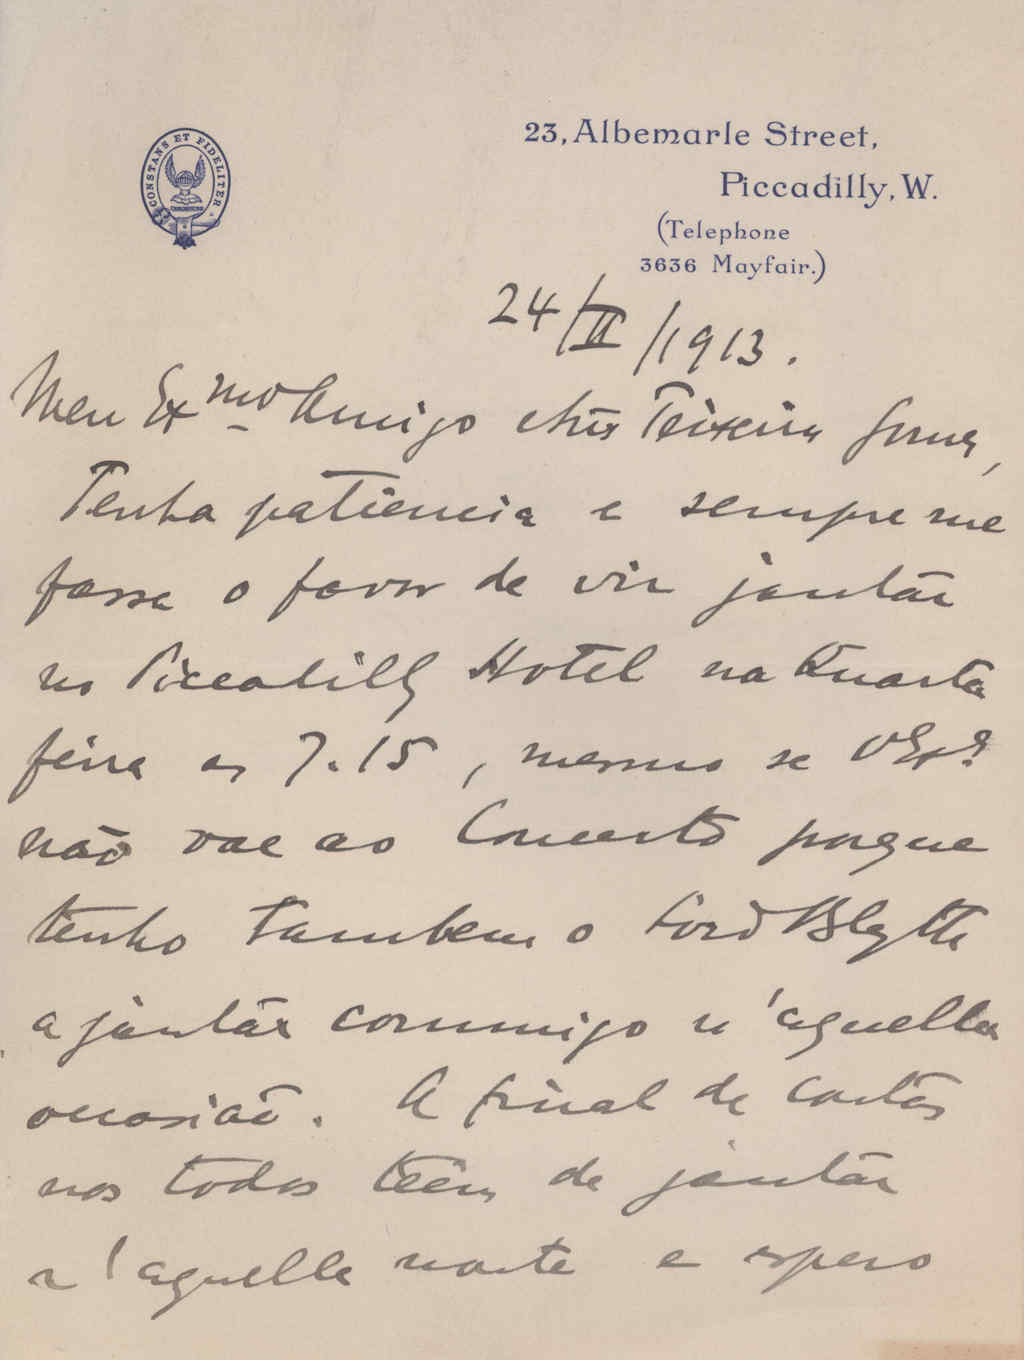 CONSTANS ET FIDELITER
23, Albemarle Street,
Piccadilly, W.
(Telephone
3636 Mayfair.)
24/II/1913.
Meu Exmo Amigo Teixeira Gomes,
Tenha patiencia e sempre me
fassa o favor de vir jantár
no Piccadilly Hotel na Quarta
feira as 7.15, mesmo se VExa
não vae ao Concerto porque
tenho tambem o Lord Blyth
a jantár commigo n'aquella
occasião. A final de contas
nos todos teêm de jantár
n'aquelle noite e espero